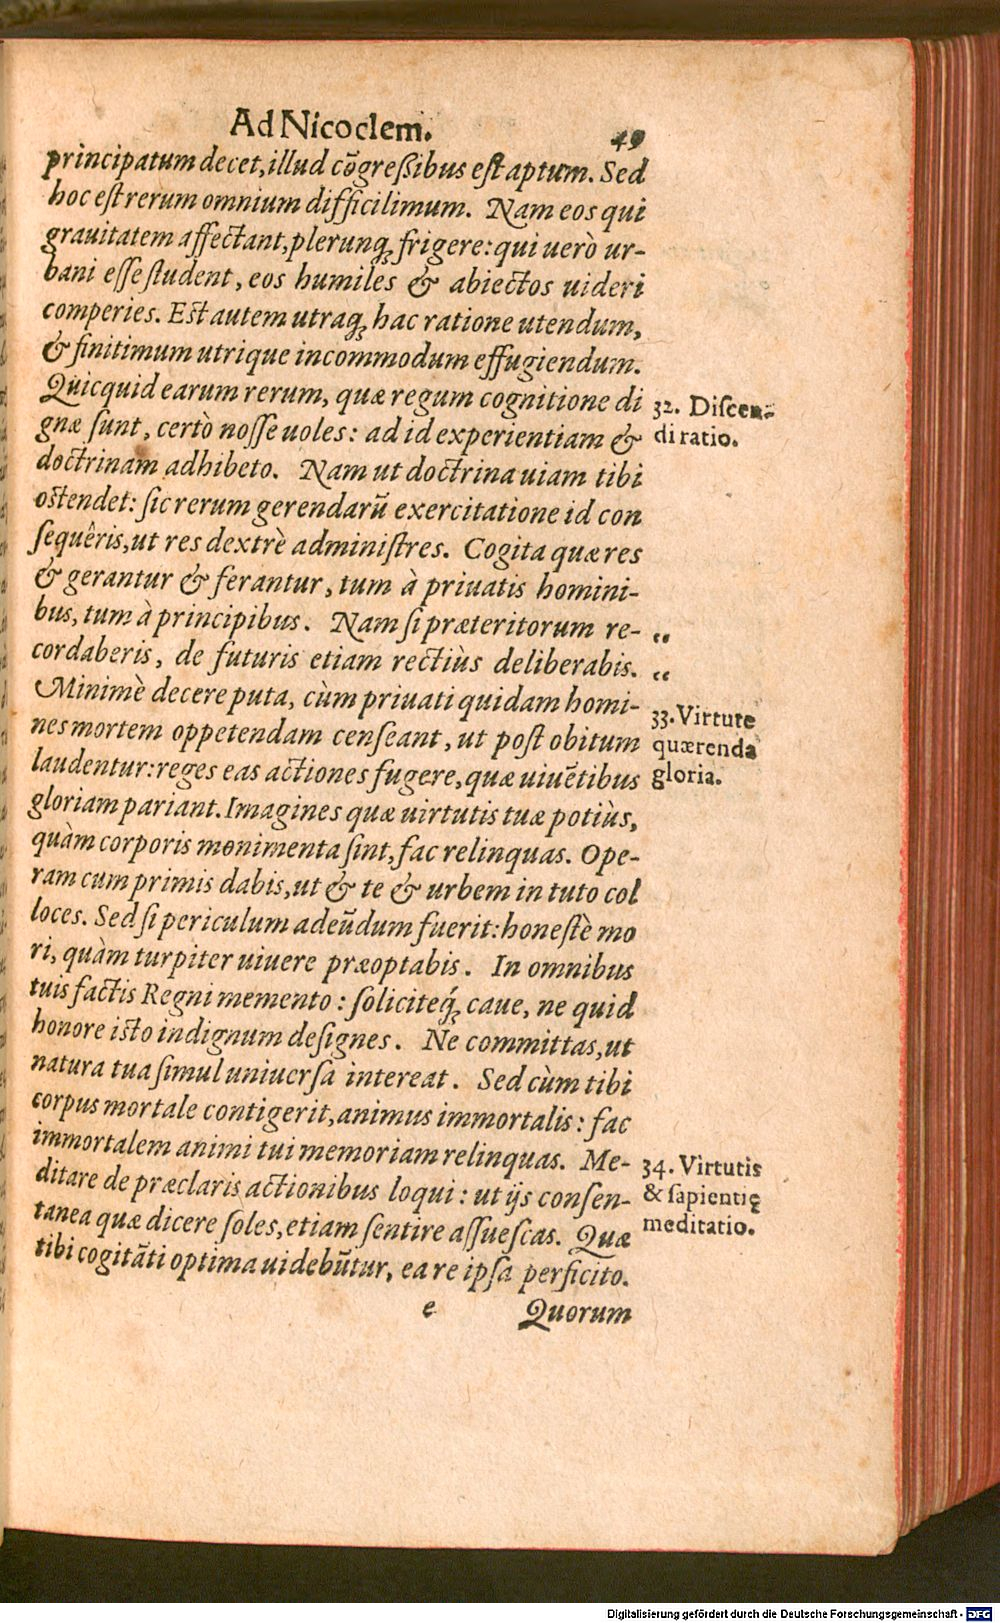 Ad Nicoclem. 49
principatum decet, illud cõgreßibus est aptum. Sed
hoc est rerum omnium difficilimum. Nam eos qui
grauitatem affectant, plerunq; frigere: qui uerò ur-
bani esse student, eos humiles & abiectos uideri
comperies. Est autem utraq; hac ratione utendum,
& finitimum utrique incommodum effugiendum.
Quicquid earum rerum, quæ regum cognitione di
gnæ sunt, certò nosse uoles: ad id experientiam &
doctrinam adhibeto. Nam ut doctrina uiam tibi
ostendet: sic rerum gerendarũ exercitatione id con
sequêris, ut res dextrè administres. Cogita quæ res
& gerantur & ferantur, tum à priuatis homini-
bus, tum à principibus. Nam si præteritorum re-
cordaberis, de futuris etiam rectiùs deliberabis.
Minimè decere puta, cùm priuati quidam homi-
nes mortem oppetendam censeant, ut post obitum
laudentur: reges eas actiones fugere, quæ uiuẽtibus
gloriam pariant. Imagines quæ uirtutis tuæ potiùs,
quàm corporis monimenta sint, fac relinquas. Ope-
ram cum primis dabis, ut & te & urbem in tuto col
loces. Sed si periculum adeũdum fuerit: honestè mo
ri, quàm turpiter uiuere præoptabis. In omnibus
tuis factis Regni memento: soliciteq́; caue, ne quid
honore isto indignum designes. Ne committas, ut
natura tua simul uniuersa intereat. Sed cùm tibi
corpus mortale contigerit, animus immortalis: fac
immortalem animi tui memoriam relinquas. Me-
ditare de præclaris actionibus loqui: ut ijs consen-
tanea quæ dicere soles, etiam sentire assuescas. Quæ
tibi cogitãti optima uidebũtur, ea re ipsa perficito.
e Quorum
32. Discen-
di ratio.
“
“
33. Virtute
quærenda
gloria.
34. Virtutis
& sapientię
meditatio.
Digitalisierung gefördert durch die Deutsche Forschungsgemeinschaft - DFG